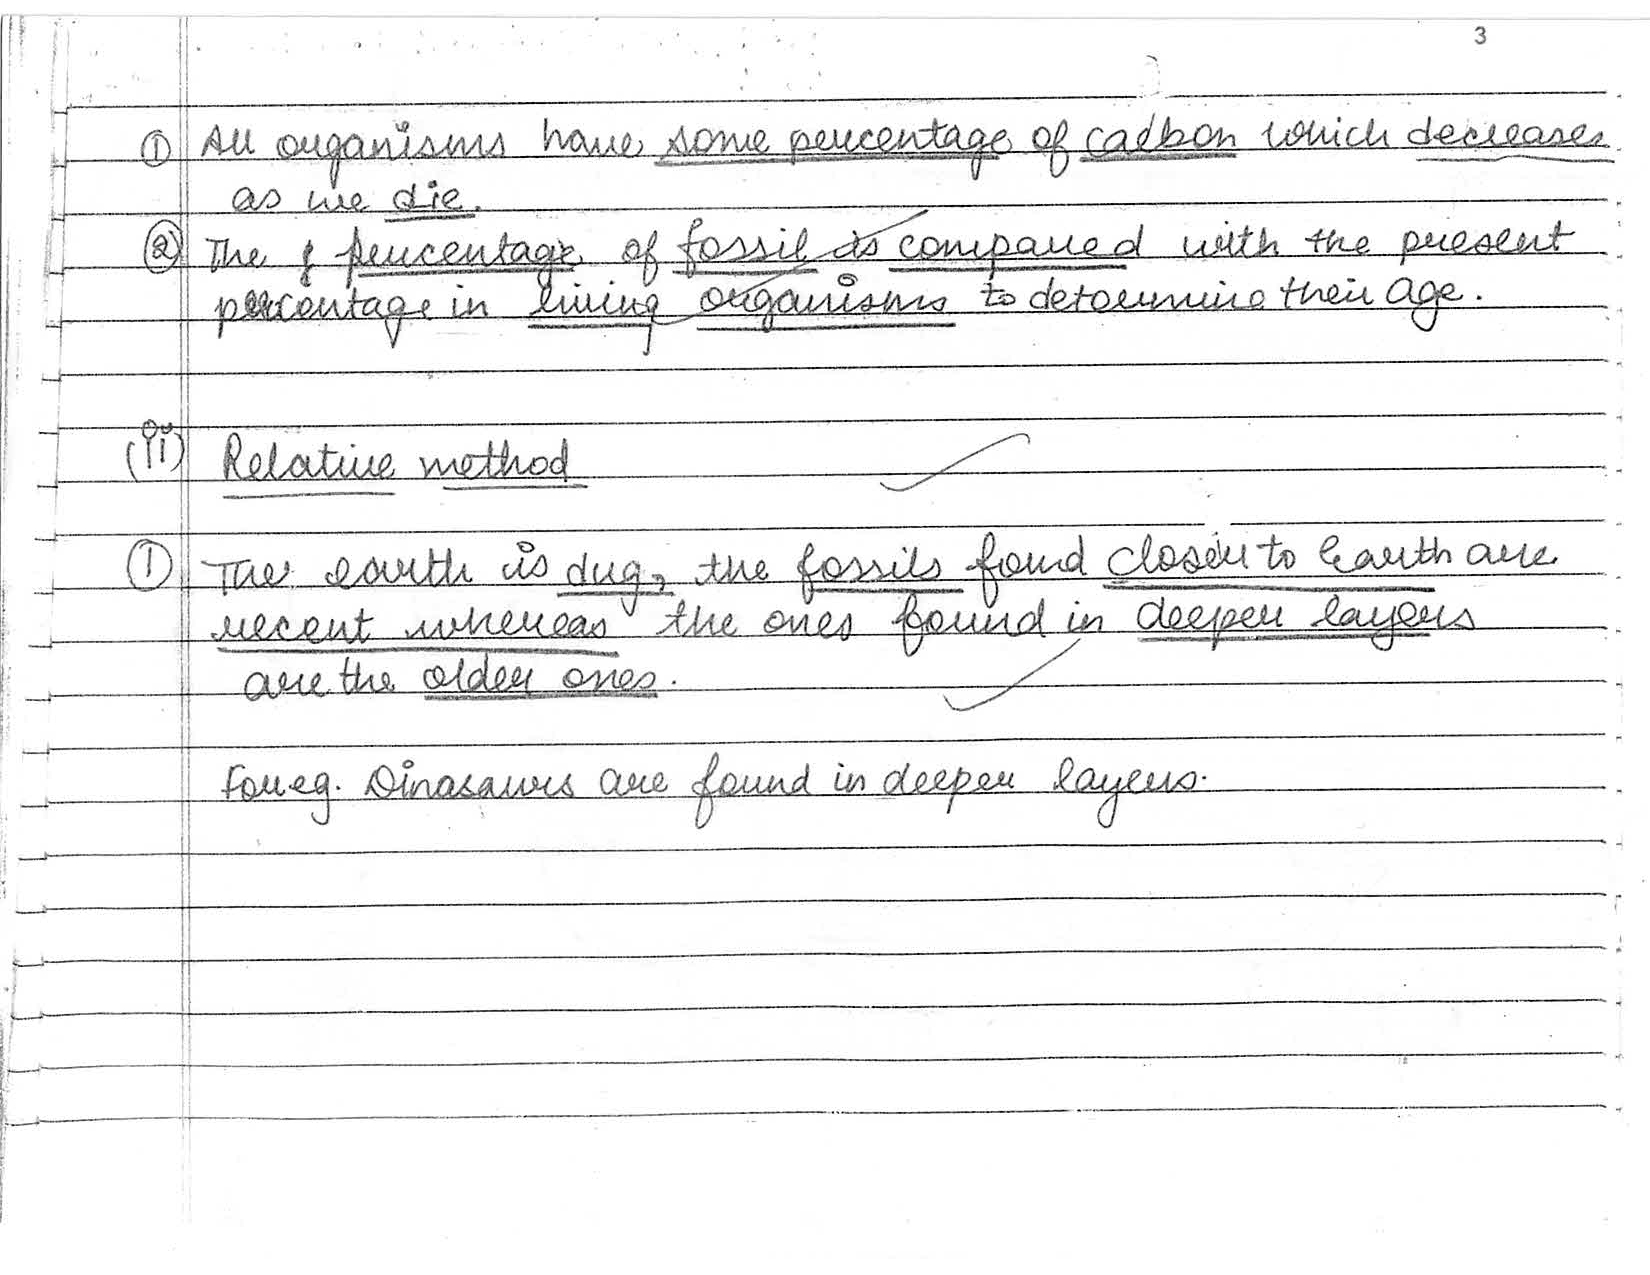 3
① All organisms have some percentage of carbon which decreases
as we die.
② The percentage of fossil is compared with the present
percentage in living organisms to determine their age.
(ii) Relative method
① The earth is dug, the fossils found closer to Earth are
recent whereas the ones found in deeper layers
are the older ones.
For eg. Dinasaurs are found in deeper layers.